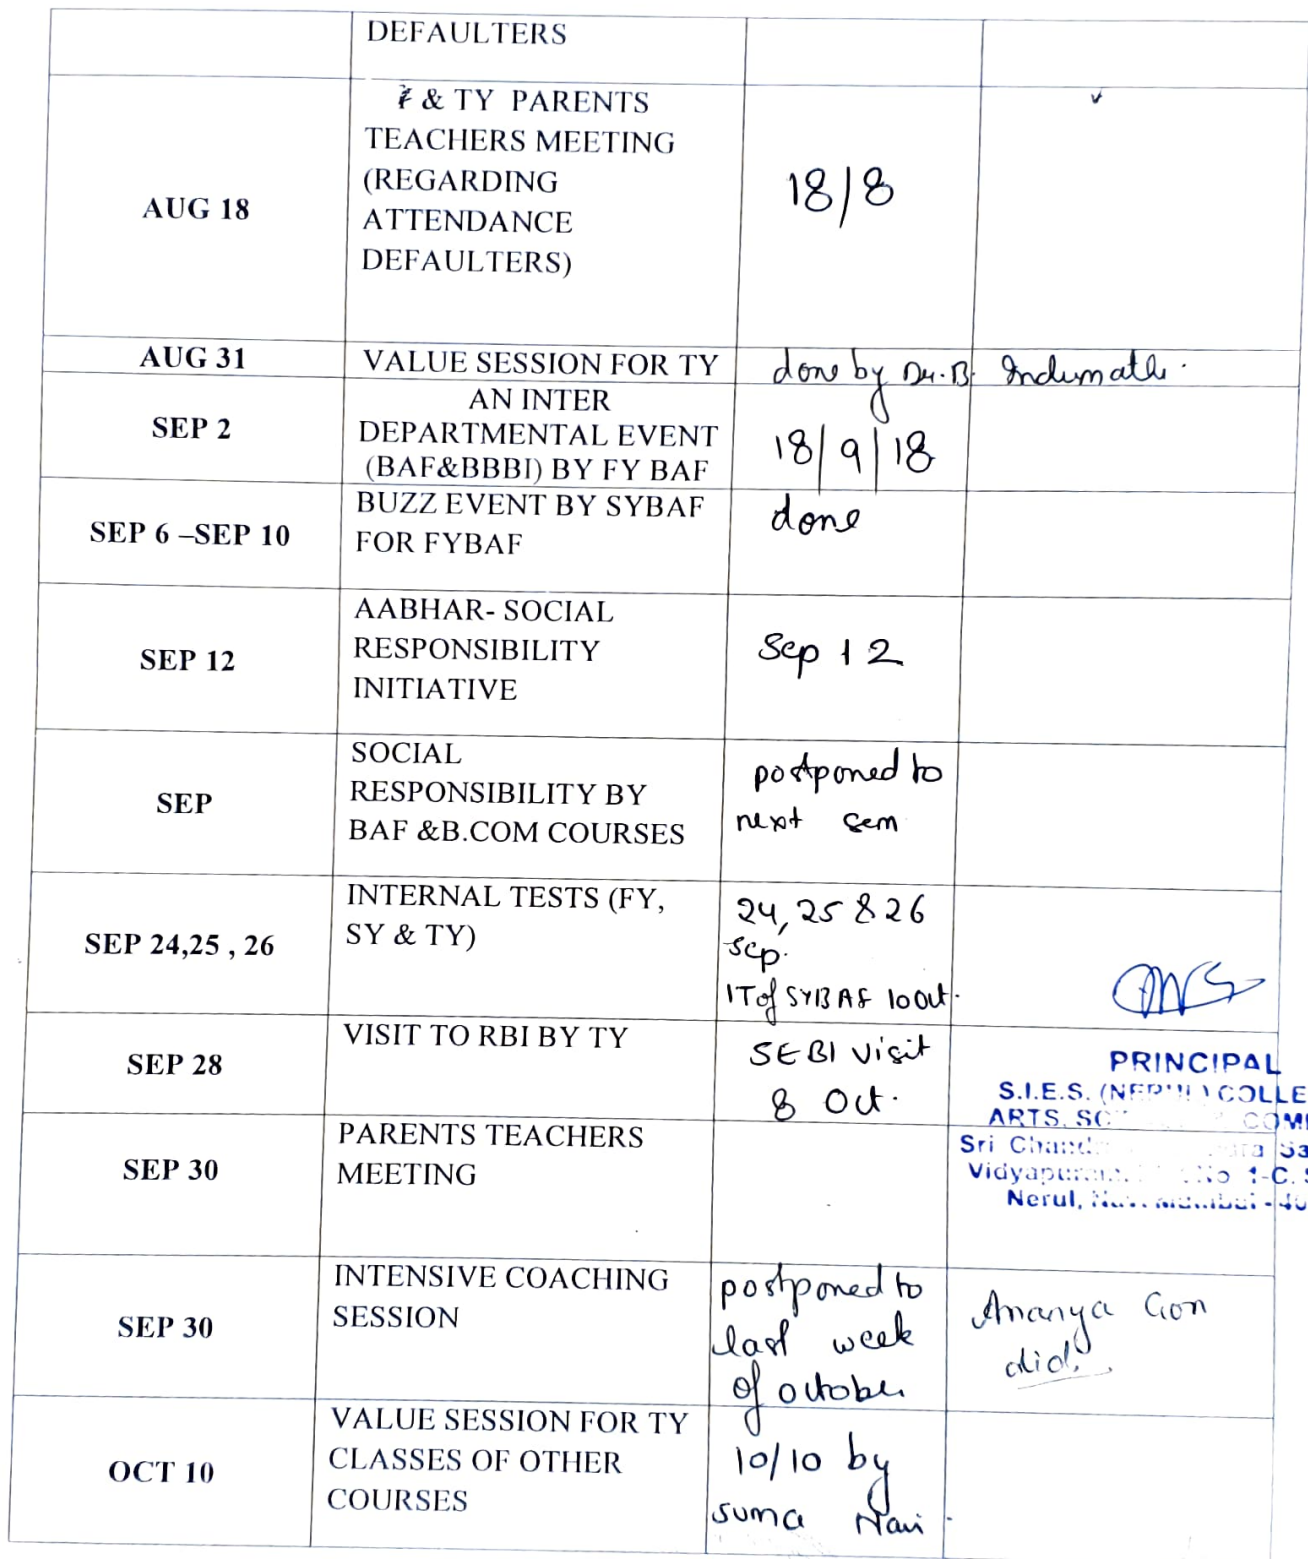 DEFAULTERS
& TY PARENTS
TEACHERS MEETING
(REGARDING
ATTENDANCE
DEFAULTERS)
AUG 18
18/8
AUG 31
VALUE SESSION FOR TY
done by Dr. B. Indumathi.
SEP 2
AN INTER
DEPARTMENTAL EVENT
(BAF&BBBI) BY FY BAF
18/9/18
SEP 6 –SEP 10
BUZZ EVENT BY SYBAF
FOR FYBAF
done
SEP 12
AABHAR- SOCIAL
RESPONSIBILITY
INITIATIVE
Sep 12
SEP
SOCIAL
RESPONSIBILITY BY
BAF &B.COM COURSES
postponed to
next sem
SEP 24,25 , 26
INTERNAL TESTS (FY,
SY & TY)
24, 25 & 26
sep.
IT of SYBAF 10 Oct.
SEP 28
VISIT TO RBI BY TY
SEBI visit
8 Oct.
PRINCIPAL
S.I.E.S. (NERUL) COLLE
ARTS, SC COM
Sri Chand Sa
Vidyapuram, No 1-C. S
Nerul, Navi Mumbai - 40
SEP 30
PARENTS TEACHERS
MEETING
SEP 30
INTENSIVE COACHING
SESSION
postponed to
last week
of october
Ananya
did.
OCT 10
VALUE SESSION FOR TY
CLASSES OF OTHER
COURSES
10/10 by
suma Nair.